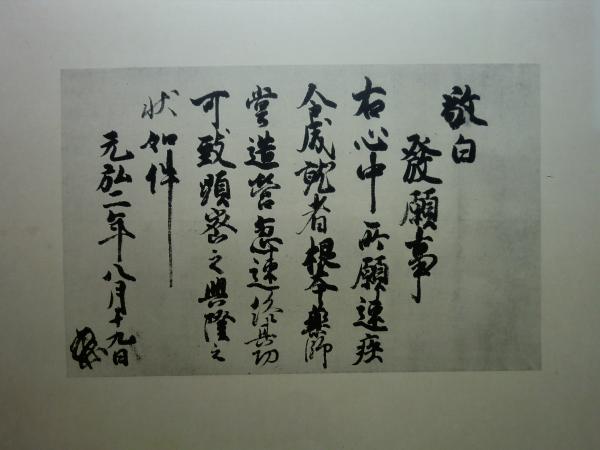 敬白
發願事
右心中所願速疾
令成就者根本藥師
堂造營急速終其功
可致顕密之興隆之
状如件
元弘二年八月十九日